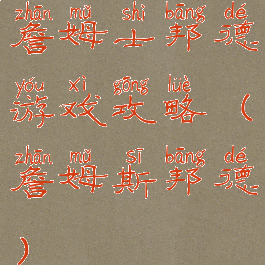 zhān mǔ shì bāng dé
詹姆士邦德
yóu xì gōng lüè
游戏攻略（
zhān mǔ sī bāng dé
詹姆斯邦德
）